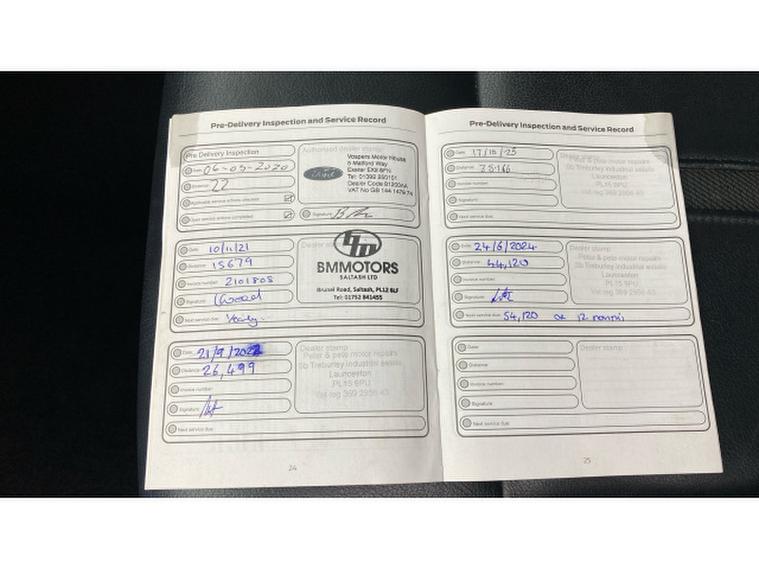 Pre-Delivery Inspection and Service Record
Pre Delivery Inspection
Date: 06-03-2020
Distance: 22
Applicable service actions checked
Open service actions completed
Authorised dealer stamp
Ford
Vospers Motor House
5 Matford Way
Exeter EX2 8FN
Tel:
Dealer Code
VAT No GB
Signature:
Date: 10/11/21
Distance: 15679
Invoice number: 2101805
Signature:
Next service due: Yearly
Dealer stamp
BMMOTORS
SALTASH LTD
Brunel Road, Saltash, PL12 6LF
Tel: 01752 841455
Date: 21/9/2022
Distance: 26,499
Invoice number:
Signature:
Next service due:
Dealer stamp
Peter & pete motor repairs
5b Treburley industrial estate
Launceston
PL15 9PU
Vat reg 369 2956 43
24
Pre-Delivery Inspection and Service Record
Date:
Distance:
Invoice number:
Signature:
Next service due:
Dealer stamp
Pete & pete motor repairs
5b Treburley industrial estate
Launceston
PL15 9PU
Vat reg 369 2956 43
Date: 24/6/2024
Distance: 44,120
Invoice number:
Signature:
Next service due: 54,120 or 12 months
Dealer stamp
Pete & pete motor repairs
5b Treburley industrial estate
Launceston
PL15 9PU
Date:
Distance:
Invoice number:
Signature:
Next service due:
Dealer stamp
25